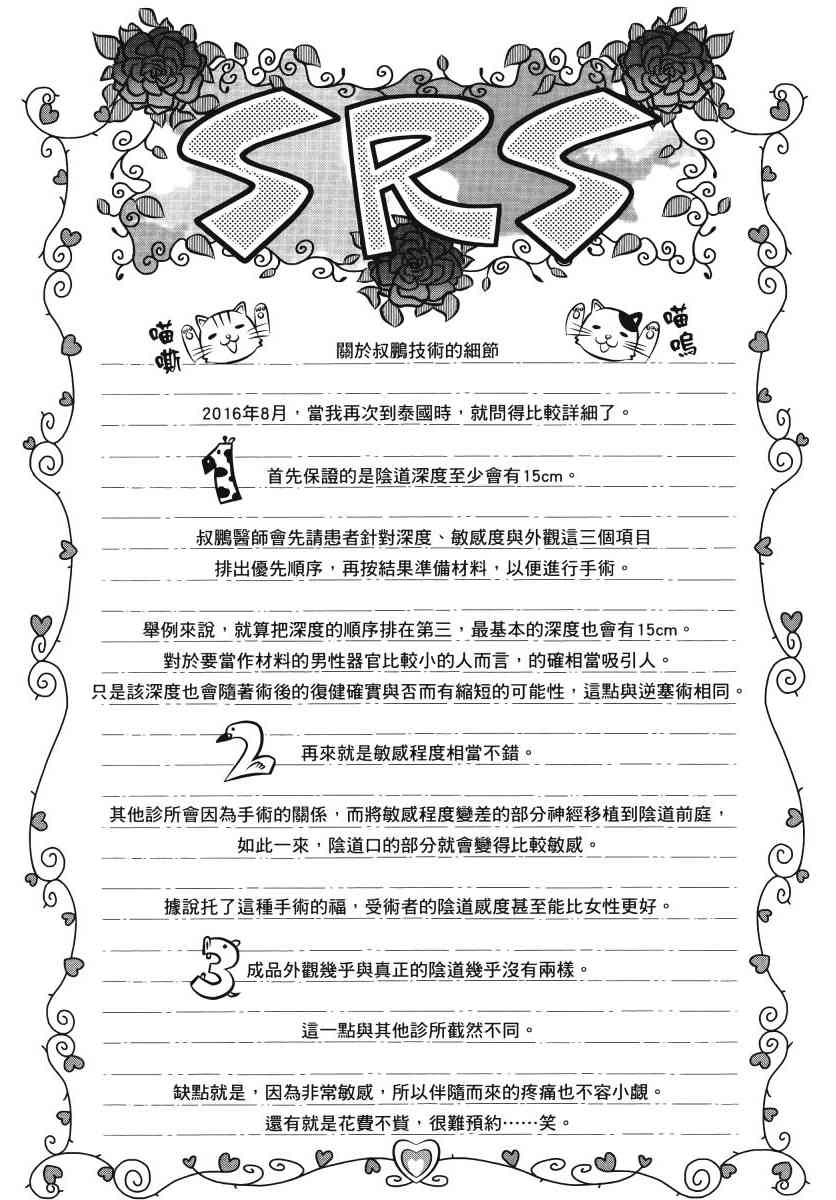 SRS
喵嘶
喵嗚
關於叔鵬技術的細節
2016年8月，當我再次到泰國時，就問得比較詳細了。
1 首先保證的是陰道深度至少會有15cm。
叔鵬醫師會先請患者針對深度、敏感度與外觀這三個項目
排出優先順序，再按結果準備材料，以便進行手術。
舉例來說，就算把深度的順序排在第三，最基本的深度也會有15cm。
對於要當作材料的男性器官比較小的人而言，的確相當吸引人。
只是該深度也會隨著術後的復健確實與否而有縮短的可能性，這點與逆塞術相同。
2 再來就是敏感程度相當不錯。
其他診所會因為手術的關係，而將敏感程度變差的部分神經移植到陰道前庭，
如此一來，陰道口的部分就會變得比較敏感。
據說托了這種手術的福，受術者的陰道感度甚至能比女性更好。
3 成品外觀幾乎與真正的陰道幾乎沒有兩樣。
這一點與其他診所截然不同。
缺點就是，因為非常敏感，所以伴隨而來的疼痛也不容小覷。
還有就是花費不貲，很難預約……笑。